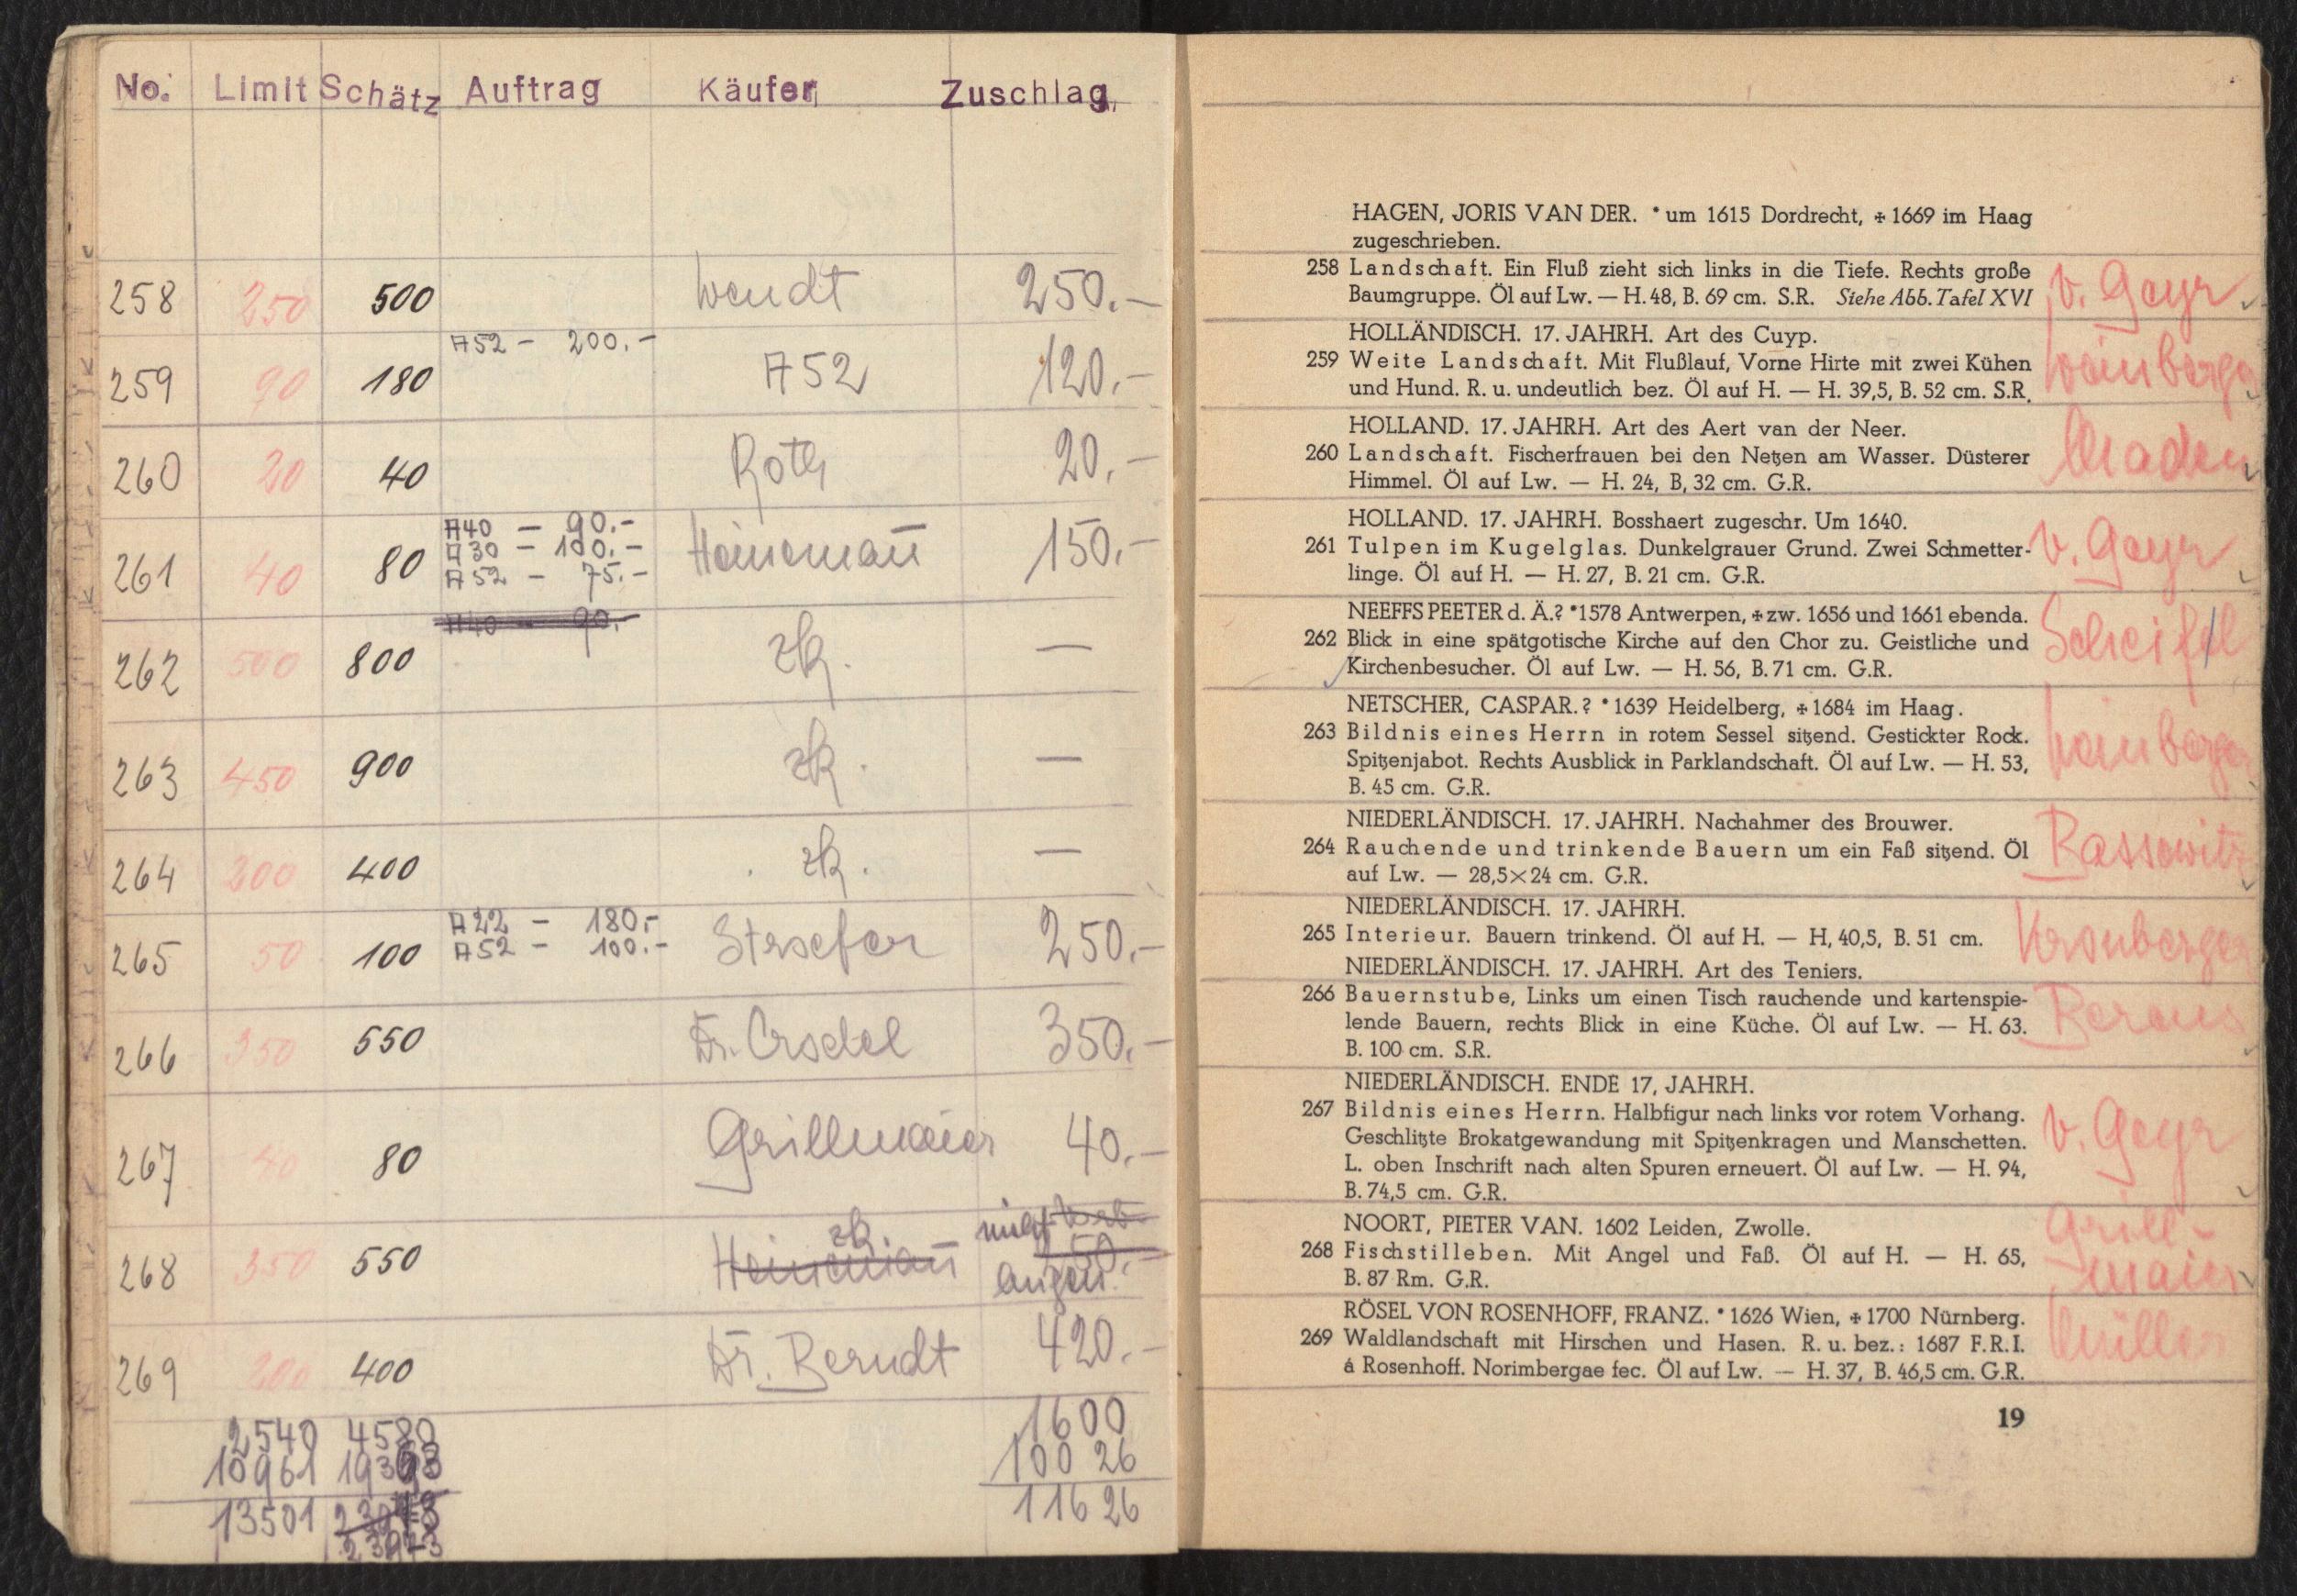 No. Limit Schätz Auftrag Käufer Zuschlag
258 250 500 Wendt 250.-
A52 - 200.-
259 90 180 A52 120.-
260 20 40 Roth 20.-
A40 - 90.-
A30 - 100.-
A52 - 75.-
261 40 80 Heinemañ 150.-
A40 - 90.-
262 500 800 zk. —
263 450 900 zk. —
264 200 400 zk. —
A22 - 180.-
A52 - 100.-
265 50 100 250.-
266 350 550 Dr. 350.-
267 40 80 Grillmaier 40.-
zk. nicht
268 350 550 Heinemañ
269 200 400 Dr. Berndt 420.-
2540 4580 1600
10961 10026
13501 11626
HAGEN, JORIS VAN DER. * um 1615 Dordrecht, ✠ 1669 im Haag
zugeschrieben.
258 Landschaft. Ein Fluß zieht sich links in die Tiefe. Rechts große
Baumgruppe. Öl auf Lw. — H. 48, B. 69 cm. S.R. Siehe Abb. Tafel XVI
v. Geyr
HOLLÄNDISCH. 17. JAHRH. Art des Cuyp.
259 Weite Landschaft. Mit Flußlauf, Vorne Hirte mit zwei Kühen
und Hund. R. u. undeutlich bez. Öl auf H. — H. 39,5, B. 52 cm. S.R.
Weinberger
HOLLAND. 17. JAHRH. Art des Aert van der Neer.
260 Landschaft. Fischerfrauen bei den Netzen am Wasser. Düsterer
Himmel. Öl auf Lw. — H. 24, B, 32 cm. G.R.
HOLLAND. 17. JAHRH. Bosshaert zugeschr. Um 1640.
261 Tulpen im Kugelglas. Dunkelgrauer Grund. Zwei Schmetter-
linge. Öl auf H. — H. 27, B. 21 cm. G.R.
v. Geyr
NEEFFS PEETER d. Ä.? *1578 Antwerpen, ✠ zw. 1656 und 1661 ebenda.
262 Blick in eine spätgotische Kirche auf den Chor zu. Geistliche und
Kirchenbesucher. Öl auf Lw. — H. 56, B. 71 cm. G.R.
NETSCHER, CASPAR.? * 1639 Heidelberg, ✠ 1684 im Haag.
263 Bildnis eines Herrn in rotem Sessel sitzend. Gestickter Rock.
Spitzenjabot. Rechts Ausblick in Parklandschaft. Öl auf Lw. — H. 53,
B. 45 cm. G.R.
Weinberger
NIEDERLÄNDISCH. 17. JAHRH. Nachahmer des Brouwer.
264 Rauchende und trinkende Bauern um ein Faß sitzend. Öl
auf Lw. — 28,5×24 cm. G.R.
Bassewitz
NIEDERLÄNDISCH. 17. JAHRH.
265 Interieur. Bauern trinkend. Öl auf H. — H, 40,5, B. 51 cm.
Kronberger
NIEDERLÄNDISCH. 17. JAHRH. Art des Teniers.
266 Bauernstube, Links um einen Tisch rauchende und kartenspie-
lende Bauern, rechts Blick in eine Küche. Öl auf Lw. — H. 63.
B. 100 cm. S.R.
NIEDERLÄNDISCH. ENDE 17, JAHRH.
267 Bildnis eines Herrn. Halbfigur nach links vor rotem Vorhang.
Geschlitzte Brokatgewandung mit Spitzenkragen und Manschetten.
L. oben Inschrift nach alten Spuren erneuert. Öl auf Lw. — H. 94,
B. 74,5 cm. G.R.
v. Geyr
NOORT, PIETER VAN. 1602 Leiden, Zwolle.
268 Fischstilleben. Mit Angel und Faß. Öl auf H. — H. 65,
B. 87 Rm. G.R.
Grill-
maier
RÖSEL VON ROSENHOFF, FRANZ. * 1626 Wien, ✠ 1700 Nürnberg.
269 Waldlandschaft mit Hirschen und Hasen. R. u. bez.: 1687 F.R.I.
á Rosenhoff. Norimbergae fec. Öl auf Lw. — H. 37, B. 46,5 cm. G.R.
Müller
19